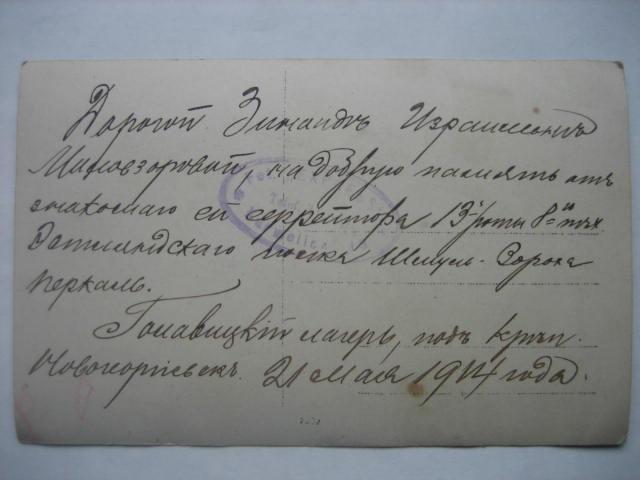 Дорогой Зинаидѣ Израилевнѣ
Миловзоровой, на добрую память отъ
знакомаго ей ефрейтора 13 роты 8го пѣх.
Эстляндскаго полка Шмуль-Сорока
Перкаль.
лагерь, подъ крѣп.
Новогеоргіевскъ. 21 мая 1914 года.